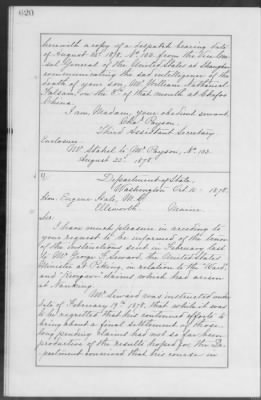 herewith a copy of a despatch bearing date
of August 22d 1878, No. 103, from the Vice Con-
sul General of the United States at Shanghai
communicating the sad intelligence of the
death of your son, Mr. William Nathaniel
on the 8th of that month at Chefoo
China.
I am, Madam, your obedient servant,
Chas. Payson.
Third Assistant Secretary
Enclosure.
Mr. Stahel to Mr. Payson, No. 103.
August 22d 1878
Department of State,
Washington Oct. 10 - 1878.
Hon. Eugene Hale, M.C.
Ellsworth Maine.
Sir:
I have much pleasure in acceding to
your request to be informed of the tenor
of the instructions sent in February last
to Mr. George F. Seward, the United States
Minister at Peking, in relation to the "Ward"
and claims which had arisen
at Nanking.
Mr. Seward was instructed under
date of February 19th 1878, that while it was
to be regretted that his continued efforts to
bring about a final settlement of those
long pending claims had not so far been
productive of the results hoped for the De-
partment conceived that his course in